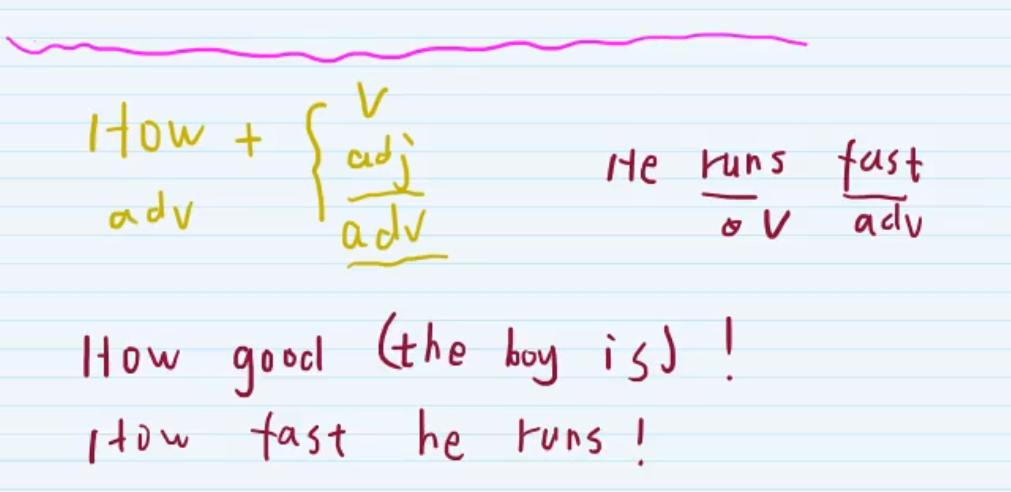 How + { V
adj
adv
adv
He runs fast
V adv
How good (the boy is) !
How fast he runs !